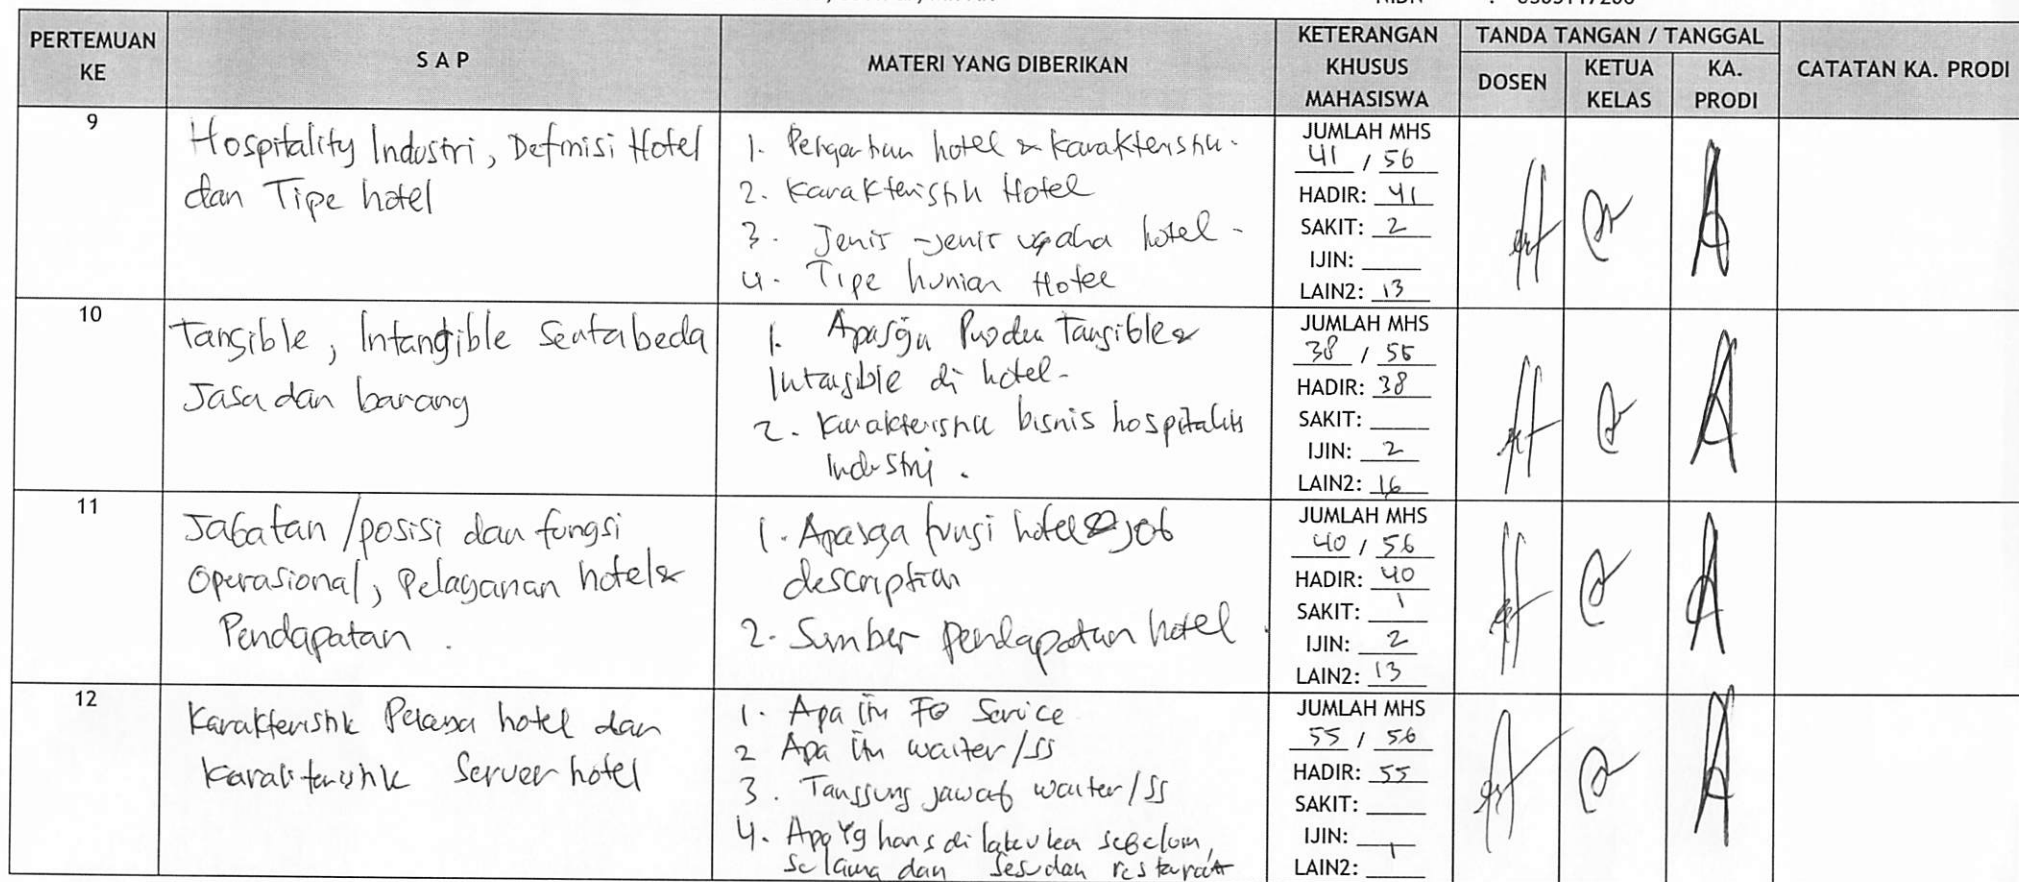 NIDN : 0305117206
PERTEMUAN KE
S A P
MATERI YANG DIBERIKAN
KETERANGAN KHUSUS MAHASISWA
TANDA TANGAN / TANGGAL
DOSEN
KETUA KELAS
KA. PRODI
CATATAN KA. PRODI
9
Hospitality Industri, Definisi Hotel
dan Tipe hotel
1. Pengertian hotel & karakteristik.
2. Karakteristik Hotel
3. Jenis-jenis usaha hotel.
4. Tipe hunian Hotel
JUMLAH MHS
41 / 56
HADIR: 41
SAKIT: 2
IJIN:
LAIN2: 13
10
Tangible, Intangible Serta beda
Jasa dan barang
1. Apa saja Produk Tangible &
Intangible di hotel.
2. Karakteristik bisnis hospitality
Industri.
JUMLAH MHS
38 / 56
HADIR: 38
SAKIT:
IJIN: 2
LAIN2: 16
11
Jabatan /posisi dan fungsi
Operasional, Pelayanan hotel &
Pendapatan.
1. Apa saja fungsi hotel & job
description
2. Sumber pendapatan hotel.
JUMLAH MHS
40 / 56
HADIR: 40
SAKIT: 1
IJIN: 2
LAIN2: 13
12
Karakteristik hotel dan
Karakteristik Server hotel
1. Apa itu FO Service
2 Apa itu waiter/SS
3. Tanggung jawab waiter/SS
4. Apa Yg harus di lakukan sebelum,
selama dan sesudah restorant
JUMLAH MHS
55 / 56
HADIR: 55
SAKIT:
IJIN: 1
LAIN2: